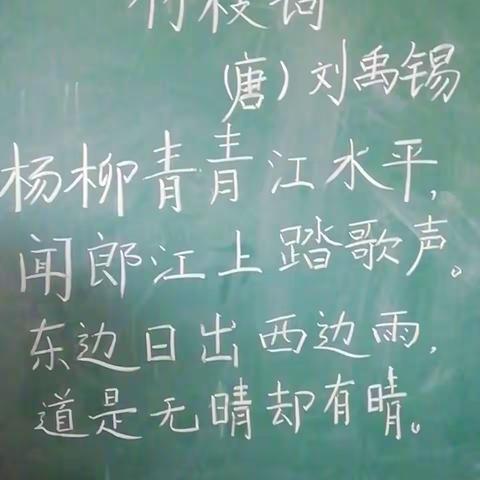 竹枝词
（唐）刘禹锡
杨柳青青江水平，
闻郎江上踏歌声。
东边日出西边雨，
道是无晴却有晴。